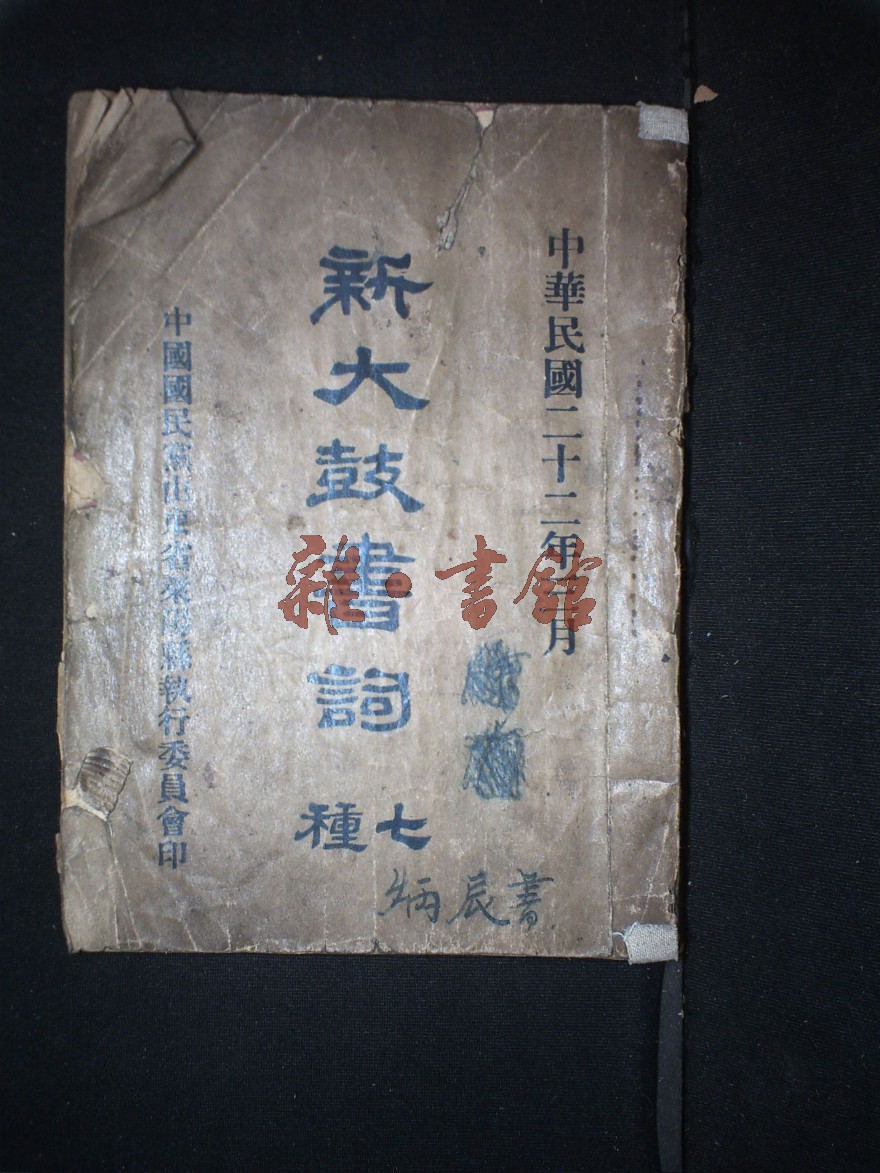 中華民國二十二年三月
新大鼓書詞
七種
炳辰書
中國國民黨山東省萊縣執行委員會印
雜·書館